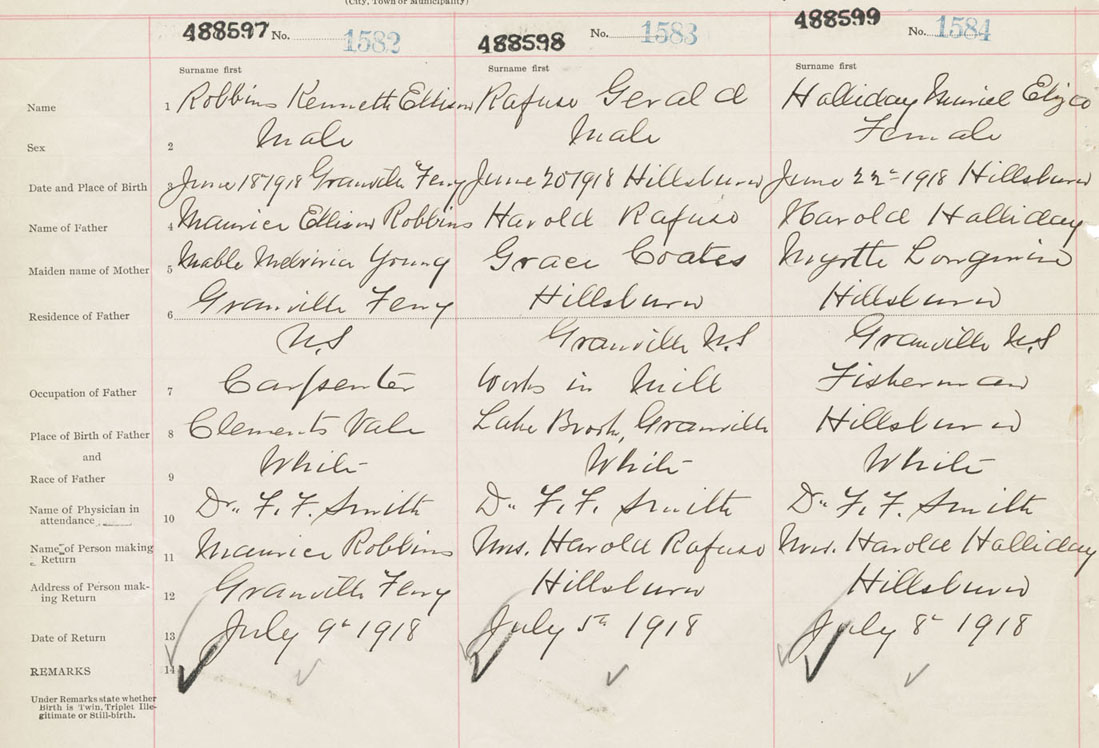 (City, Town or Municipality)
488597 No. 1582 488598 No. 1583 488599 No. 1584
Surname first Surname first Surname first
Name 1 Robbins Kenneth Ellison Rafuse Gerald Halliday Muriel Eliza
Sex 2 Male Male Female
Date and Place of Birth 3 June 18 1918 Granville Ferry June 20 1918 Hillsburn June 22 1918 Hillsburn
Name of Father 4 Maurice Ellison Robbins Harold Rafuse Harold Halliday
Maiden name of Mother 5 Mable Young Grace Coates Myrtle Longmire
Residence of Father 6 Granville Ferry Hillsburn Hillsburn
N.S Granville N.S Granville N.S
Occupation of Father 7 Carpenter Works in Mill Fisherman
Place of Birth of Father 8 Clements Vale Lake Brook, Granville Hillsburn
and
Race of Father 9 White White White
Name of Physician in
attendance 10 Dr. F. F. Smith Dr. F. F. Smith Dr. F. F. Smith
Name of Person making
Return 11 Maurice Robbins Mrs. Harold Rafuse Mrs. Harold Halliday
Address of Person mak-
ing Return 12 Granville Ferry Hillsburn Hillsburn
Date of Return 13 July 9th 1918 July 5th 1918 July 8th 1918
REMARKS 14
Under Remarks state whether
Birth is Twin, Triplet Ille-
gitimate or Still-birth.